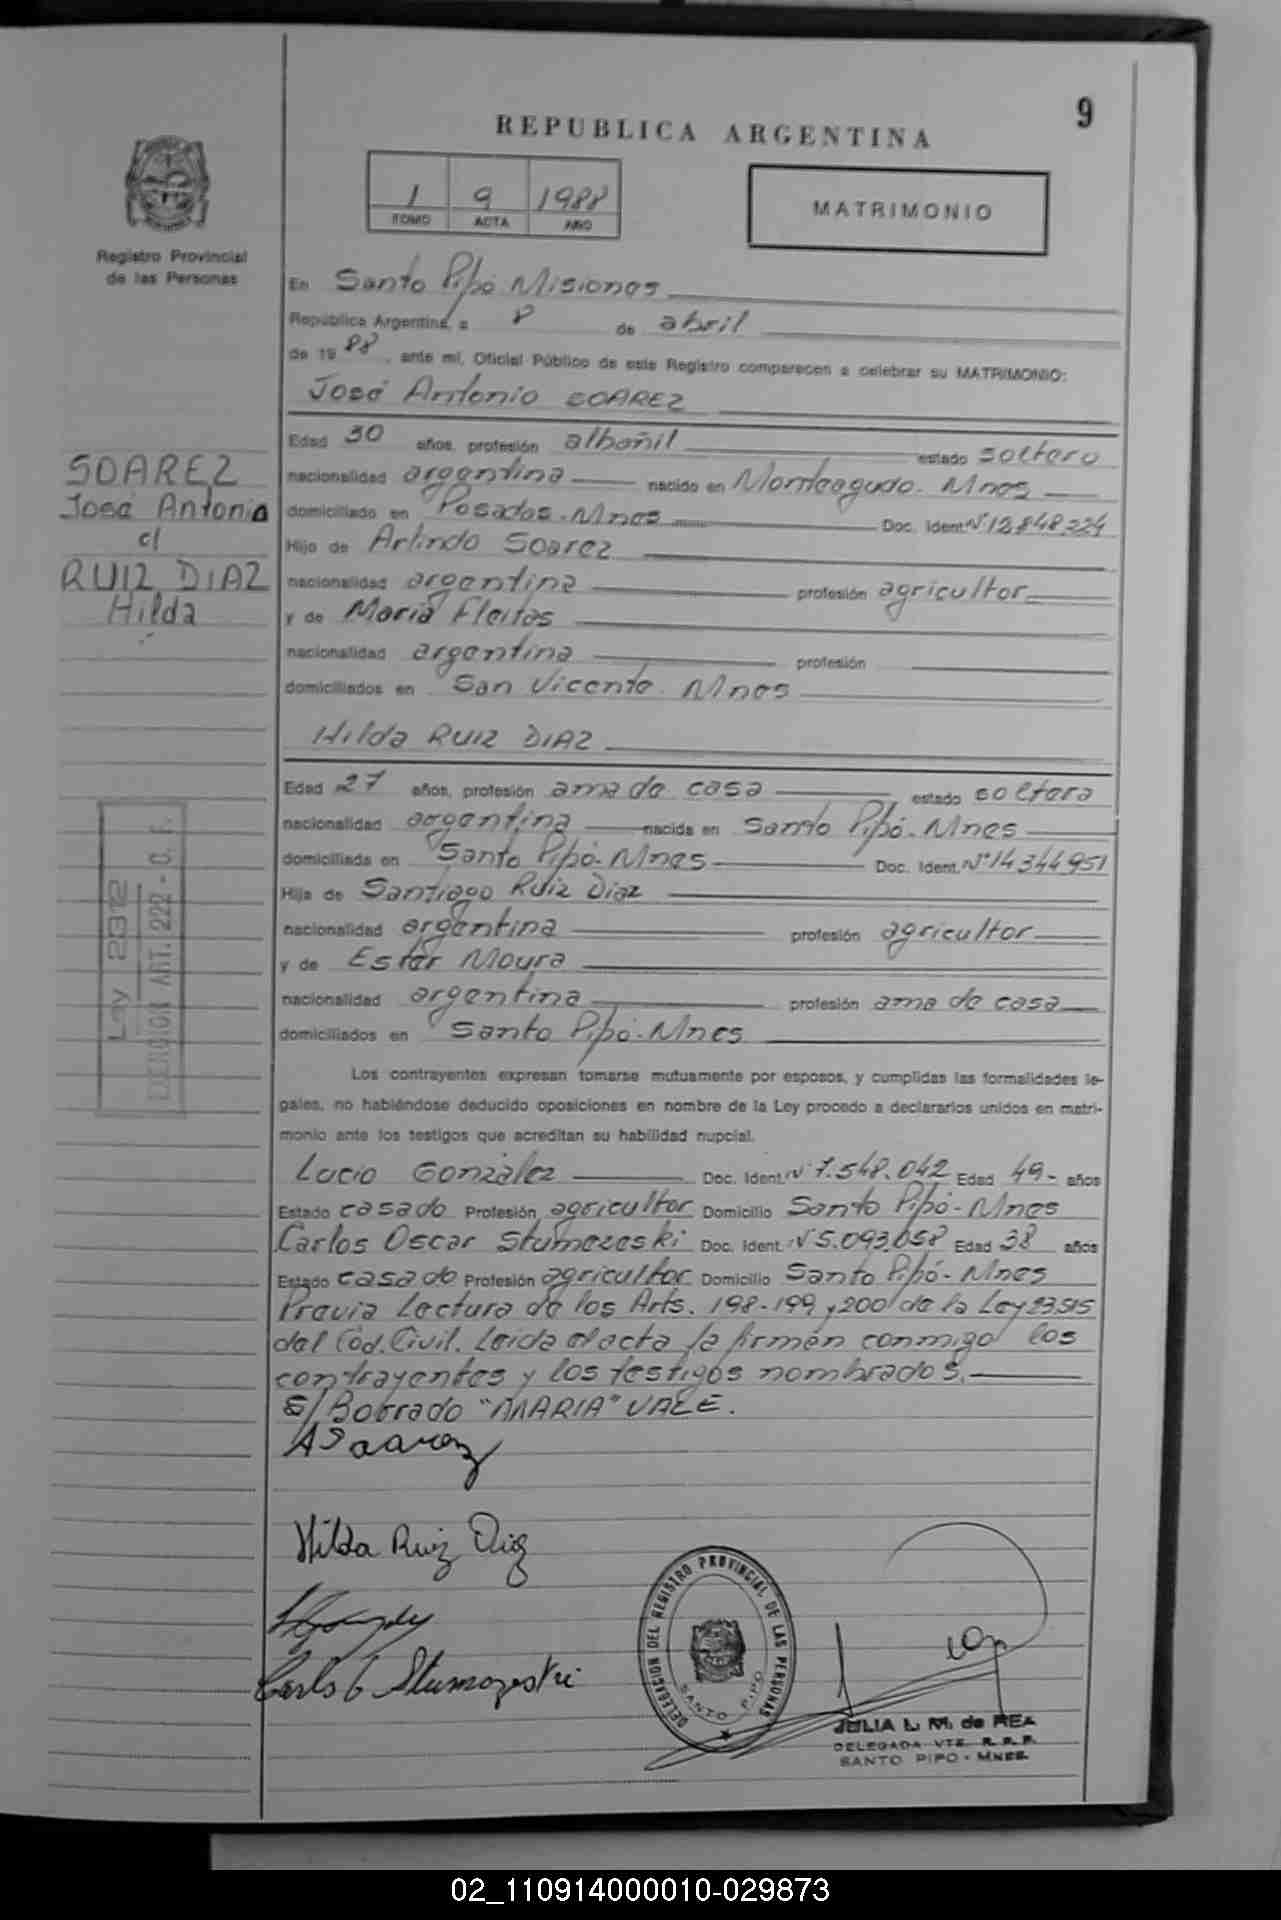 9
REPUBLICA ARGENTINA
1 9 1988
TOMO ACTA AÑO
MATRIMONIO
Registro Provincial
de las Personas
En Santo Pipó Misiones
República Argentina, a 8 de abril
de 19 88, ante mí, Oficial Público de este Registro comparecen a celebrar su MATRIMONIO:
José Antonio SOAREZ
Edad 30 años, profesión albañil estado soltero
SOAREZ
José Antonio
c/
RUIZ DIAZ
Hilda
nacionalidad argentina nacido en Monteagudo. Mnes
domiciliado en Posadas. Mnes Doc. Ident. Nº 12.848.224
Hijo de Arlindo Soarez
nacionalidad argentina profesión agricultor
y de Maria Fleitas
nacionalidad argentina profesión
domiciliados en San Vicente. Mnes
Hilda RUIZ DIAZ
Edad 27 años, profesión ama de casa estado soltera
nacionalidad argentina nacida en Santo Pipó. Mnes
domiciliada en Santo Pipó. Mnes Doc. Ident. Nº 14344951
Hija de Santiago Ruiz Diaz
nacionalidad argentina profesión agricultor
y de Ester Moura
nacionalidad argentina profesión ama de casa
domiciliados en Santo Pipó. Mnes
Ley 2312
EXENCION ART. 222 - C. F.
Los contrayentes expresan tomarse mutuamente por esposos, y cumplidas las formalidades le-
gales, no habiéndose deducido oposiciones en nombre de la Ley procedo a declararlos unidos en matri-
monio ante los testigos que acreditan su habilidad nupcial.
Lucio González Doc. Ident. Nº 7.548.042 Edad 49- años
Estado casado Profesión agricultor Domicilio Santo Pipó - Mnes
Carlos Oscar Stumozeski Doc. Ident. Nº 5.093.058 Edad 38 años
Estado casado Profesión agricultor Domicilio Santo Pipó - Mnes
Previa Lectura de los Arts. 198-199 y 200 de la Ley 23.515
del Cód. Civil. Leida el acta la firmán conmigo los
contrayentes y los testigos nombrados.
S/Borrado "MARIA" VALE.
A Soarez
Hilda Ruiz Diaz
Carlos O Stumozeski
DELEGACION DEL REGISTRO PROVINCIAL DE LAS PERSONAS
SANTO PIPO
JULIA L. M. de REA
DELEGADA VTE. R. P. P.
SANTO PIPO - MNES.
02_110914000010-029873